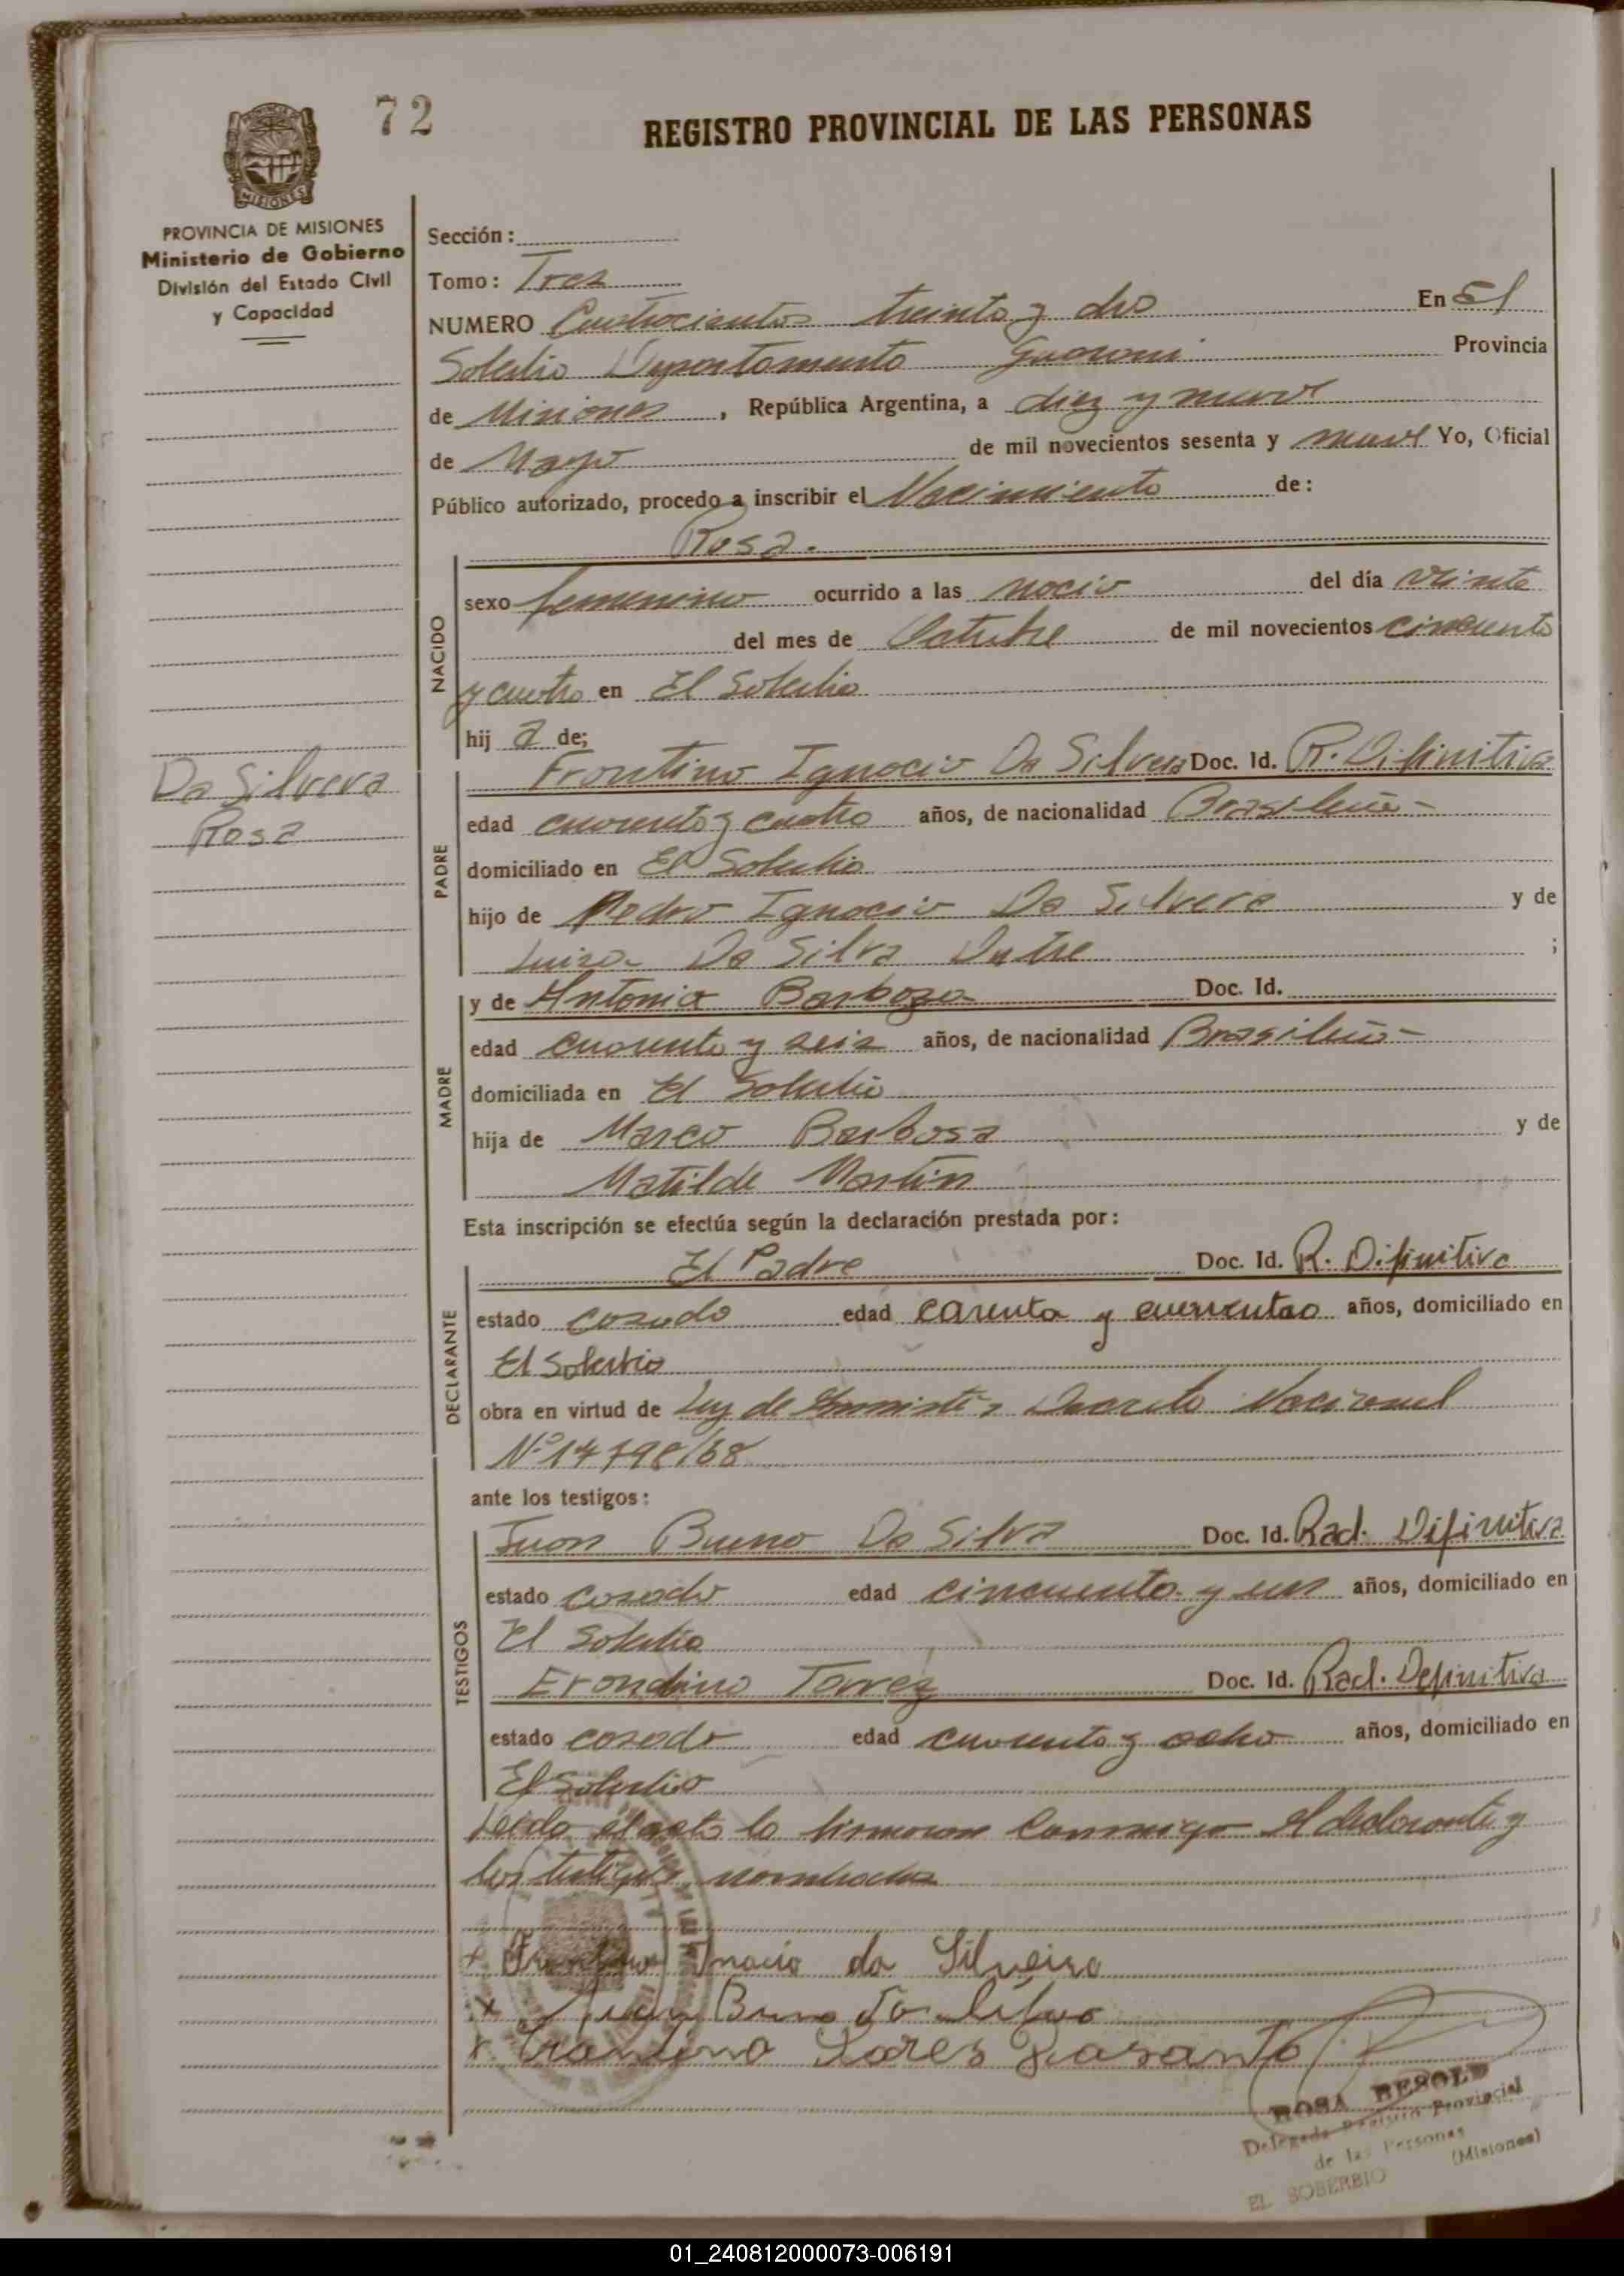 72
REGISTRO PROVINCIAL DE LAS PERSONAS
PROVINCIA DE MISIONES
MISIONES
PROVINCIA DE MISIONES
Ministerio de Gobierno
División del Estado Civil
y Capacidad
Sección:
Tomo: Tres
NUMERO Cuatrocientos treinta y dos En El
Soberbio Departamento Guarani Provincia
de Misiones, República Argentina, a diez y nueve
de Mayo de mil novecientos sesenta y nueve Yo, Oficial
Público autorizado, procedo a inscribir el Nacimiento de:
Rosa.
NACIDO
sexo femenino ocurrido a las nacio del día veinte
del mes de Octubre de mil novecientos cincuenta
y cuatro en El Soberbio
hij a de;
Da Silvera
Rosa
PADRE
Frontino Ignacio Da Silvera Doc. Id. R. Difinitiva
edad cuarenta y cuatro años, de nacionalidad Brasileña-
domiciliado en El Soberbio
hijo de Pedro Ignacio Da Silvera y de
Luiza Da Silva Dutre ;
MADRE
y de Antonia Barboza Doc. Id.
edad cuarenta y seis años, de nacionalidad Brasileña-
domiciliada en El Soberbio
hija de Marco Barbosa y de
Matilde Martin
Esta inscripción se efectúa según la declaración prestada por:
DECLARANTE
El Padre Doc. Id. R. Difinitiva
estado casado edad carenta y años, domiciliado en
El Soberbio
obra en virtud de Ley de Decreto Nacional
Nº 14798/68
ante los testigos:
TESTIGOS
Juan Bueno Da Silva Doc. Id. Rad. Difinitiva
estado casado edad cincuenta y un años, domiciliado en
El Soberbio
Erondino Torrez Doc. Id. Rad. Definitiva
estado casado edad cuarenta y ocho años, domiciliado en
El Soberbio
Leida el acta la firmaron conmigo el declarante y
los testigos nombrados
x Inacio da Silveira
x Juan Bueno da Silva
x
ROSA BESOLD
Delegada Registro Provincial
de las Personas
EL SOBERBIO (Misiones)
01_240812000073-006191